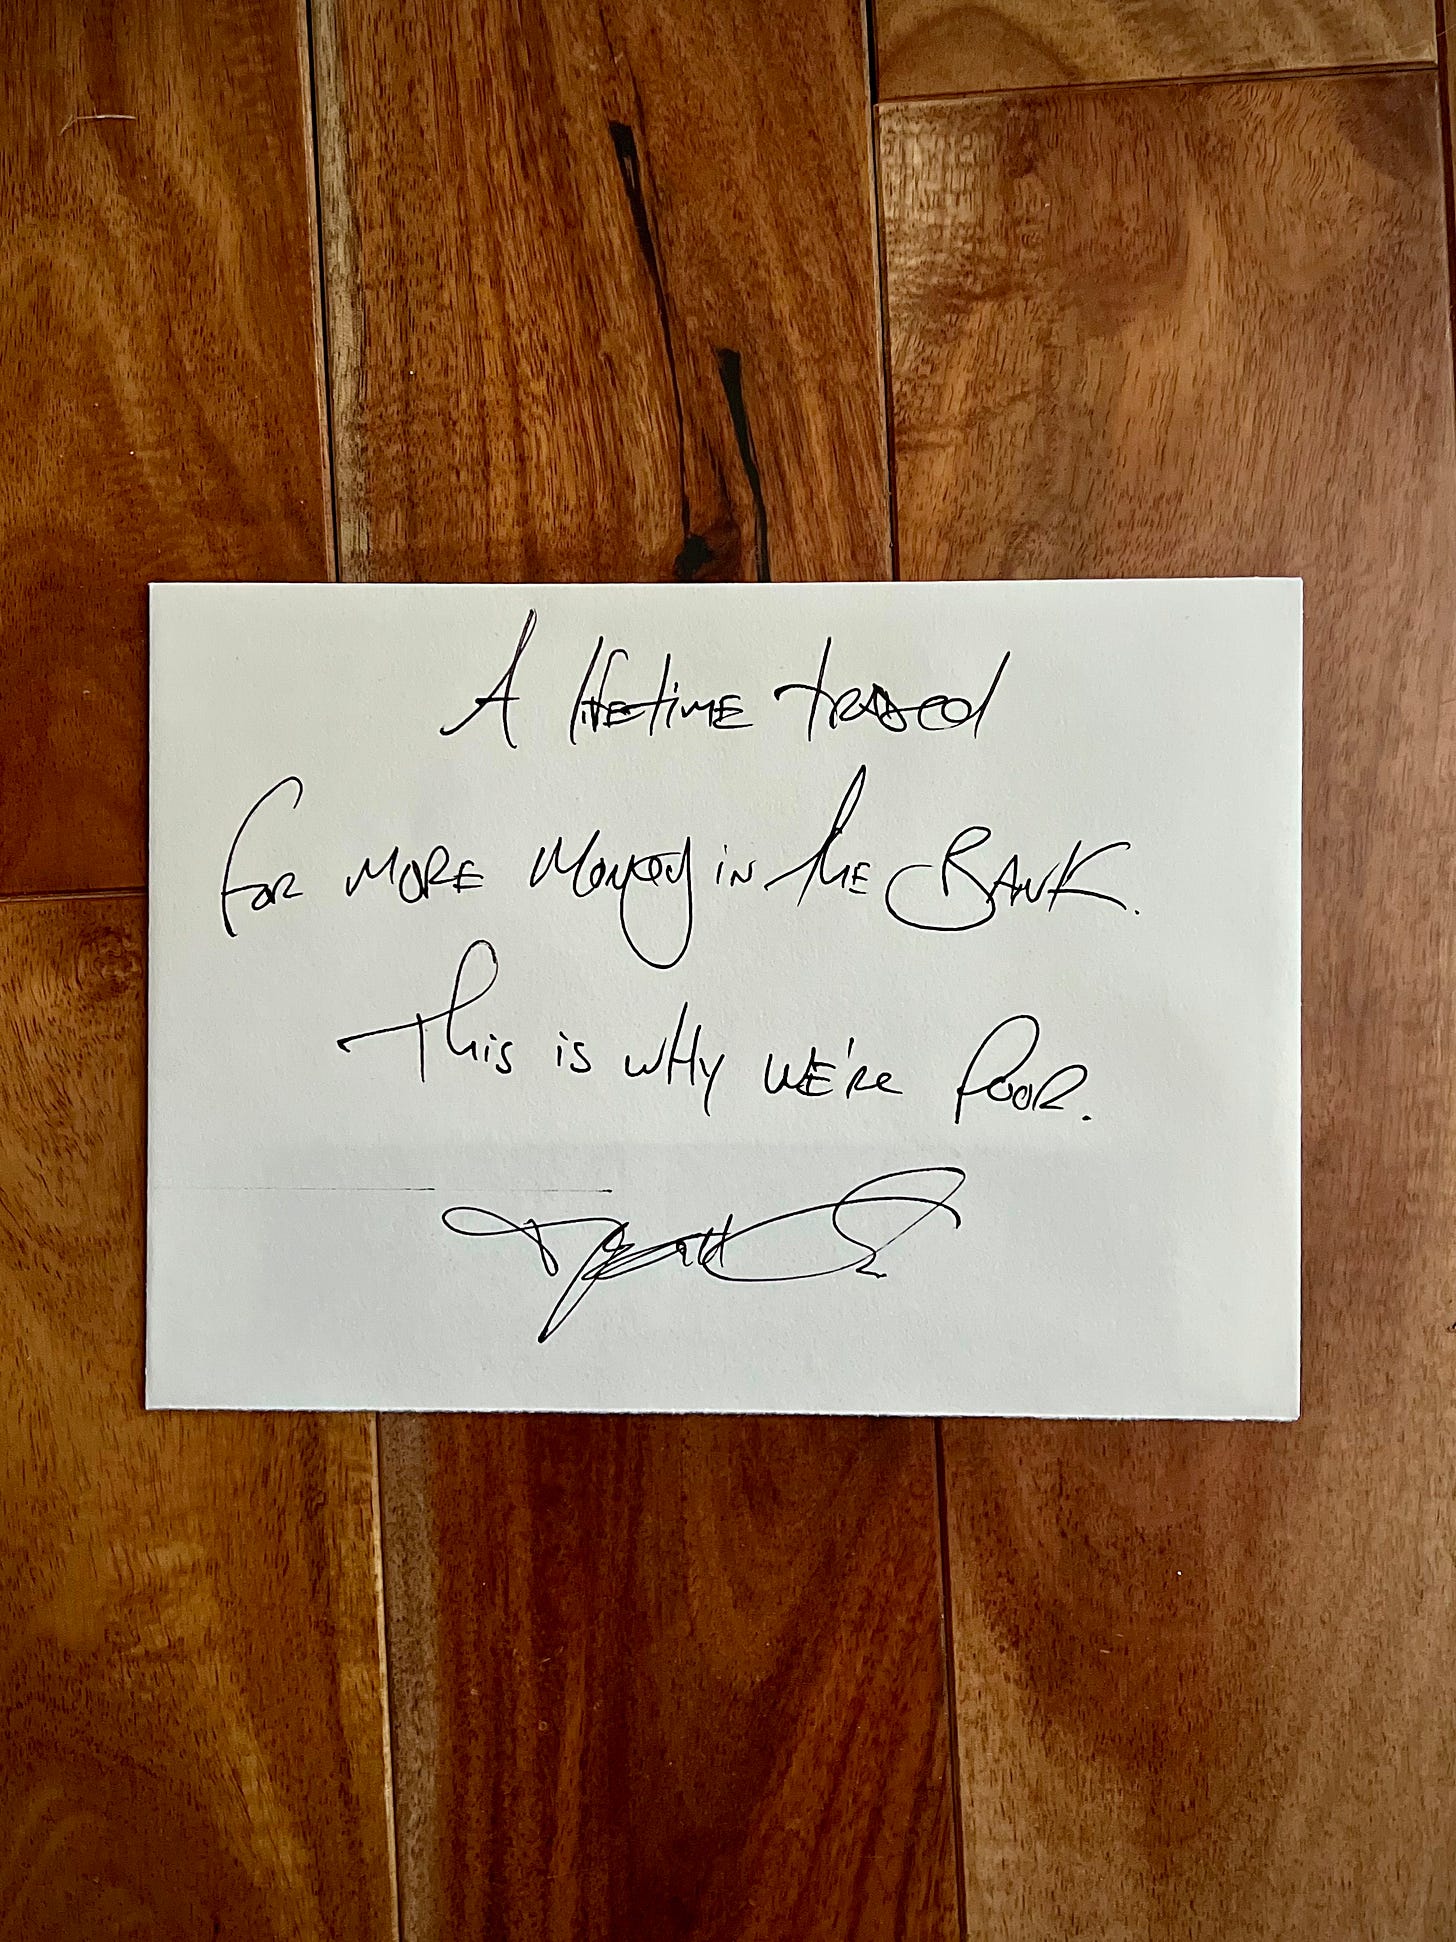 A lifetime traded
for more money in the Bank.
This is why we're poor.